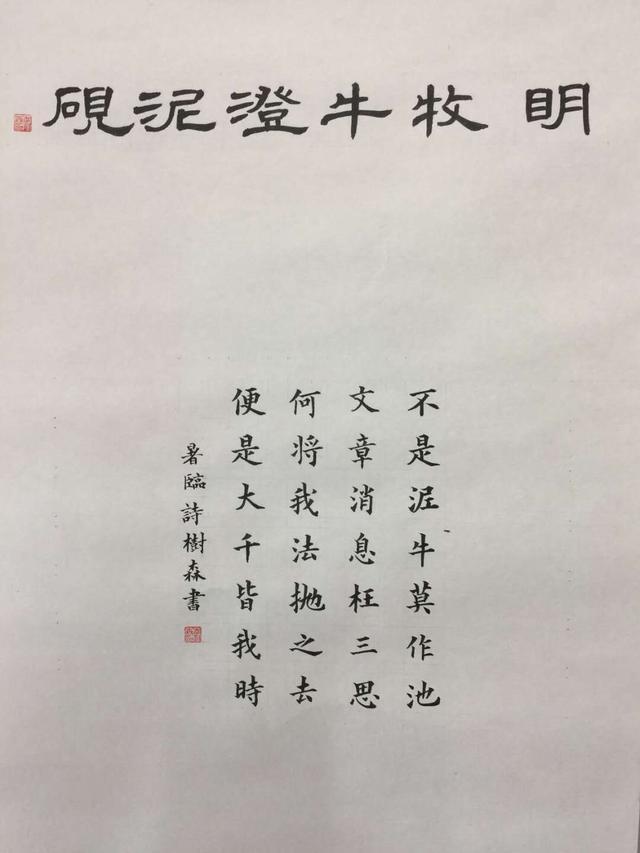 明牧牛澄泥硯
不是涯牛莫作池
文章消息枉三思
何將我法抛之去
便是大千皆我時
暑臨詩樹森書